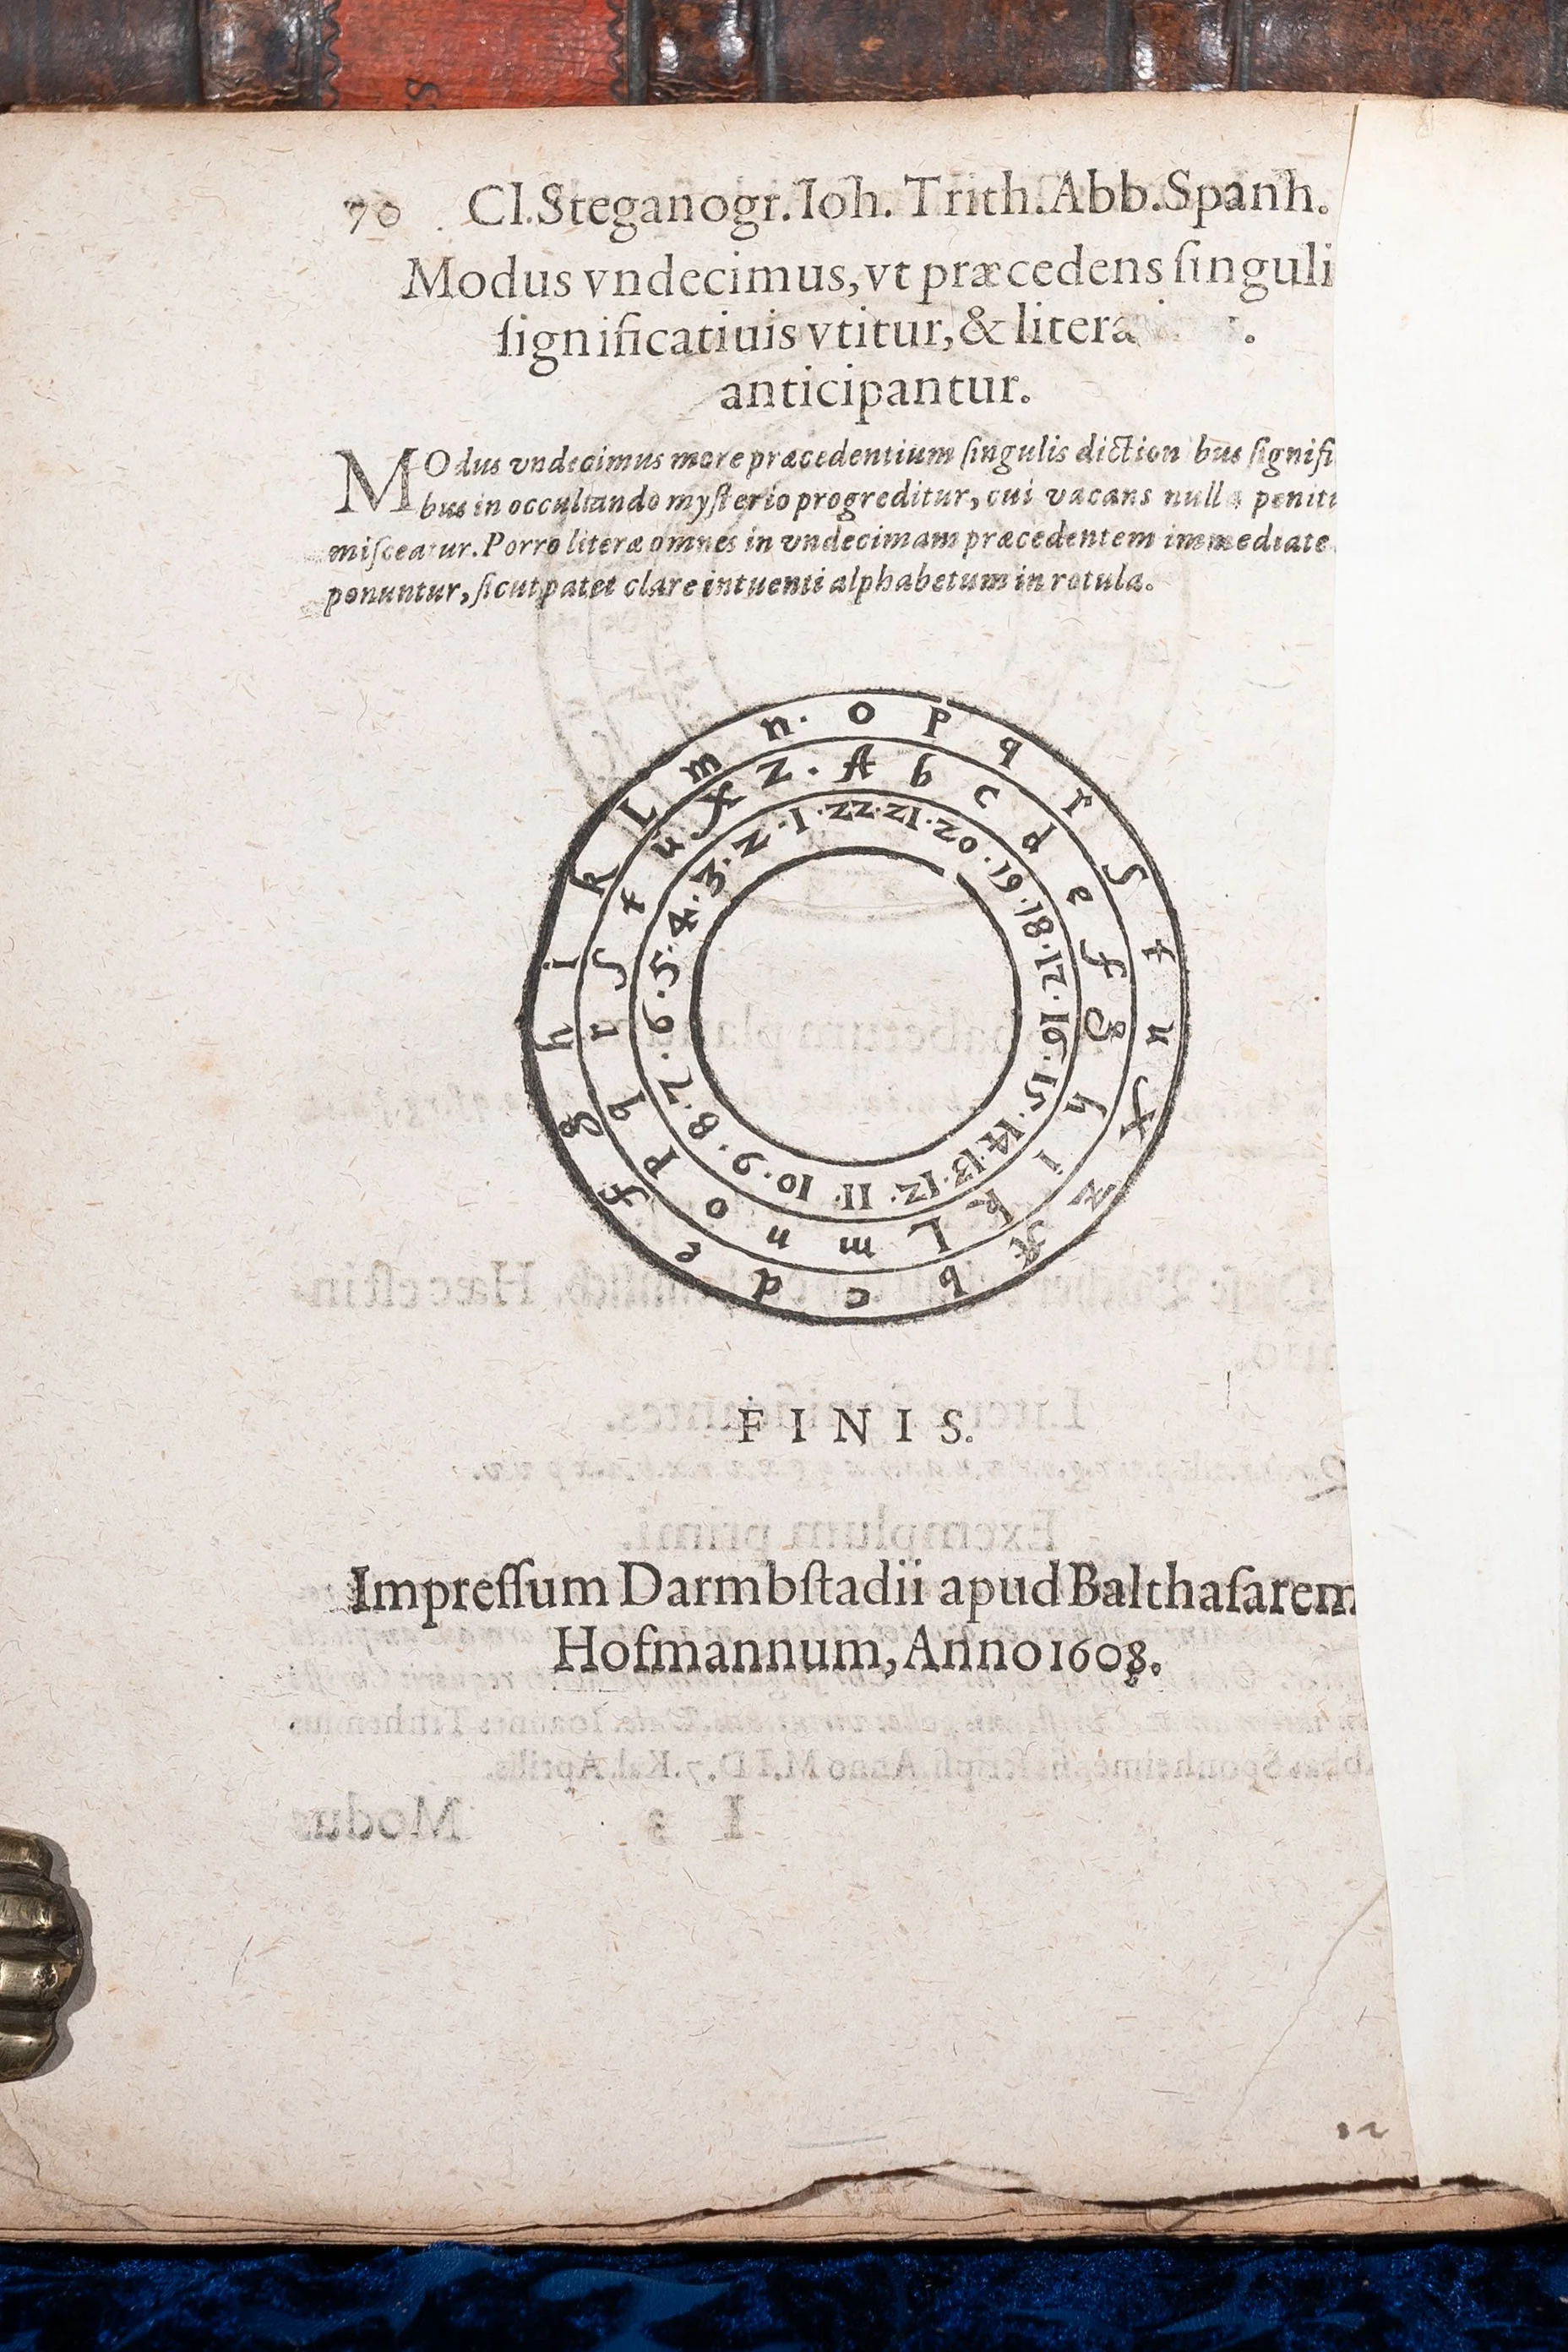 70 Cl. Steganogr. Ioh. Trith. Abb. Spanh.
Modus vndecimus, vt præcedens ſinguli
ſignificatiuis vtitur, & litera
anticipantur.
MOdus vndecimus more præcedentium ſingulis diction bus ſignifi
bus in occultando myſterio progreditur, cui vacans null a penit
miſceatur. Porro literæ omnes in vndecimam præcedentem immediate
ponuntur, ſicut patet clare intuenti alphabetum in rotula.
o p q r s t u x z A b c d e f g h i k L m n.
A b c d e f g h i k L m n o p q r ſ t u X Z.
22. 21. 20. 19. 18. 17. 16. 15. 14. 13. 12. 11. 10. 9. 8. 7. 6. 5. 4. 3. 2. 1.
FINIS.
Impreſſum Darmbſtadii apud Balthaſarem
Hofmannum, Anno 1608.